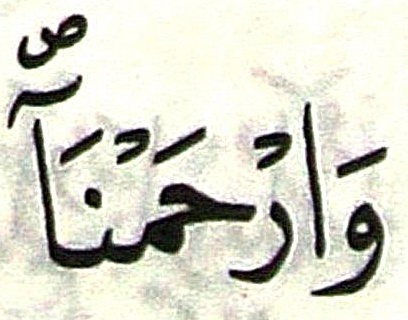 وَارْحَمْنَآ ص